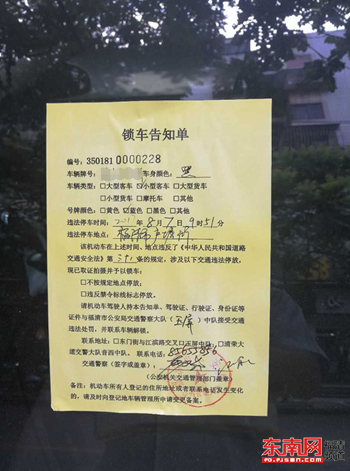 锁车告知单
编号: 350181 0000228
车辆牌号: 车身颜色: 黑
车辆类型: □大型客车 小型客车 □大型货车
□小型货车 □摩托车 □其他
号牌颜色: □黄色 蓝色 □黑色 □其他
违法停车时间: 年 8 月 7 日 9 时 51 分
违法停车地点:
该机动车在上述时间、地点违反了《中华人民共和国道路
交通安全法》第 条的规定, 涉及以下交通违法停放。
现已取证拍摄并予以锁车:
□不按规定地点停放。
□违反禁令标线标志停放。
请机动车驾驶人持本告知单、驾驶证、行驶证、身份证等
证件与福清市公安局交通警察大队( 玉屏 )中队接受交通
违法处罚, 并联系车辆解锁。
联系地址: □东门街与江滨路交叉口玉屏中队 □清荣大
道交警大队音西中队 联系电话: 85655856
交通警察 (签字或盖章):
(公安机关交通管理部门盖章)
备注: 机动车所有人登记的住所地址或者联系电话发生变化
的, 请及时向登记地车辆管理所申请变更备案。
东南网
福清频道
FQ.FJSEN.COM